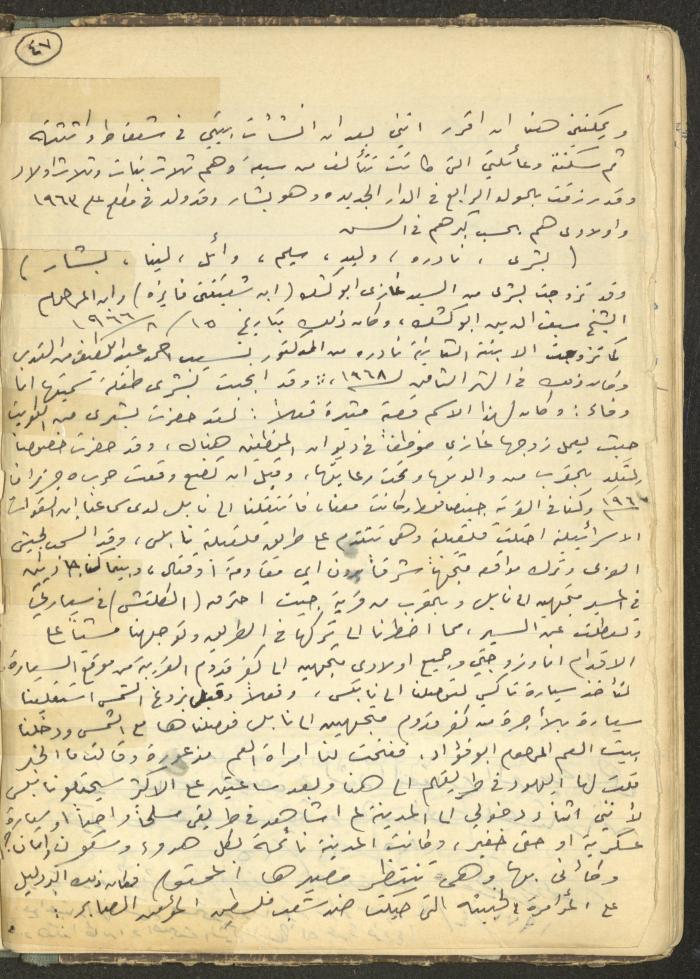 ٤٧
ويمكنني هنا ان اقرر انني بعد ان انشأت بيتي في شعفاط واثثته
ثم سكنته وعائلتي التي كانت تتألف من سبعة وهم ثلاث بنات وثلاث اولاد
وقد رزقت بالمولد الرابع في الدار الجديده وهو بشار وقد ولد في مطلع عام ١٩٦٣
واولادي هم بحسب كبرهم في السن
( بشرى ، نادره ، وليد ، سليم ، وائل ، لينا ، بشار )
وقد تزوجت بشرى من السيد غازي ابو كشك (ابن شقيقتي فايزه) وابن المرحوم
الشيخ سيف الدين ابو كشك ، وكان ذلك بتاريخ ١٥/٨/١٩٦٦
كما تزوجت الابنة الثانية نادره من الدكتور احمد عبد اللطيف من القدس
وكان ذلك في الشهر الثامن لـ ١٩٦٨ ، وقد انجبت بشرى طفلة سميتها انا
وفاء : وكان لهذا الاسم قصة مثيرة فعلاً : لقد حضرت بشرى من الكويت
حيث يعمل زوجها غازي موظفا في ديوان الموظفين هناك ، وقد حضرت خصوصا
لتلد بالقرب من والديها وتحت رعايتها ، وقبل ان تضع وقعت حرب ٥ حزيران
١٩٦٧ وكنا في القرية وكانت معنا ، فانتقلنا الى نابلس لدى سماعنا ان القوات
الاسرائيلية احتلت قلقيلية وهي تتقدم على طريق قلقيلية نابلس ، وقد انسحب الجيش
العربي وترك مواقعه متجها شرقا بدون اي مقاومة او قتال ، وبينما كنا
في السير متجهين الى نابلس وبالقرب من قرية جيت احترق (الكلتش) في سيارتي
وتعطلت عن السير ، مما اضطرنا الى تركها في الطريق وتوجهنا مشيا على
الاقدام انا وزوجتي وجميع اولادي متجهين الى كفر قدوم القريبة من موقع السيارة
لنأخذ سيارة تاكسي لتوصلنا الى نابلس ، وفعلاً وقبل بزوغ الشمس استقلينا
سيارة بالأجرة من كفر قدوم متجهين الى نابلس فوصلناها مع الشمس ودخلنا
بيت العم المرحوم ابو فؤاد ، ففتحت لنا امراة العم مذعورة وقالت ما الخبر
قلت لها اليهود في طريقهم الى هنا وبعد ساعتين على الاكثر سيحتلون نابلس
لأنني اثناء دخولي الى المدينة لم اشاهد في طريقي مسلحا واحدا او سيارة
عسكرية او حتى خفير ، وكانت المدينة نائمة بكل هدوء وسكون وامان
وكأني بها وهي تنتظر مصيرها المحتوم فكان ذلك اكبر دليل
على المؤامرة الخبيثه التي حيكت ضد شعب فلسطين المؤمن الصابر .